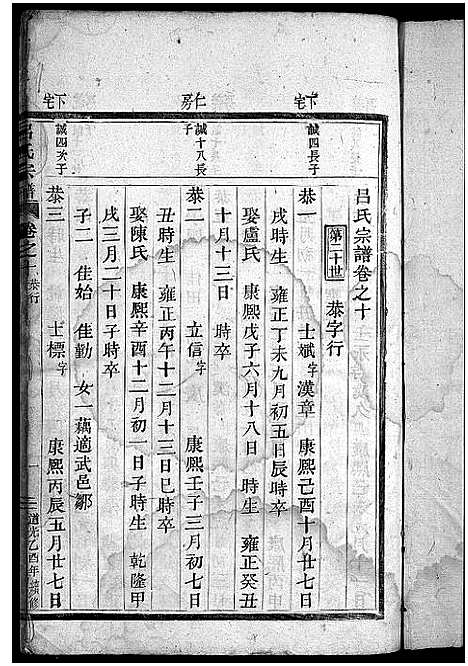 呂氏宗譜卷之十
第二十世 恭字行
下宅 誠四長子
恭一 士斌字漢章 康熙己酉十月廿七日
戌時生 雍正丁未九月初五日辰時卒
娶盧氏 康熙戊子六月十八日 時生 雍正癸丑
十月十三日 時卒
仁房 誠十八長子
恭二 立信字 康熙壬子三月初七日
丑時生 雍正丙午十二月十三日巳時卒
娶陳氏 康熙辛酉十二月初一日子時生 乾隆甲
戌三月二十日子時卒
子二 佳始 佳勤 女一藕適武邑鄒
下宅 誠四次子
恭三 士標字 康熙丙辰五月廿七日
呂氏宗譜 卷之十 恭行 一 道光乙酉年續修